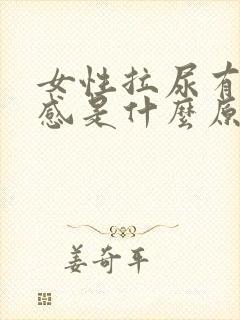 女性拉尿有
感是什麼原
姜奇平